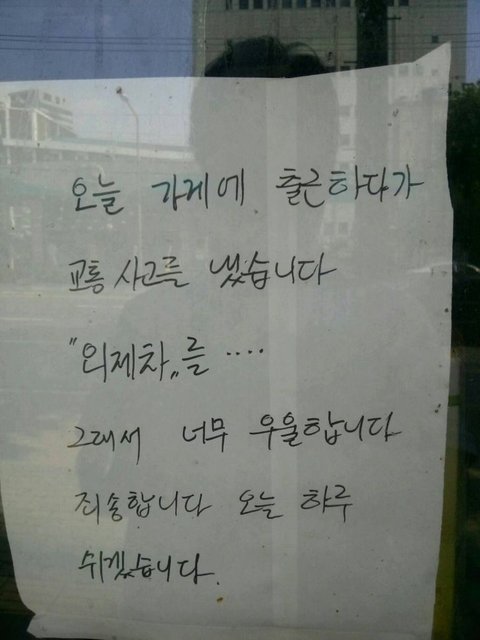 오늘 가게에 출근하다가
교통사고를 냈습니다
"외제차"를 ....
그래서 너무 우울합니다
죄송합니다 오늘 하루
쉬겠습니다.